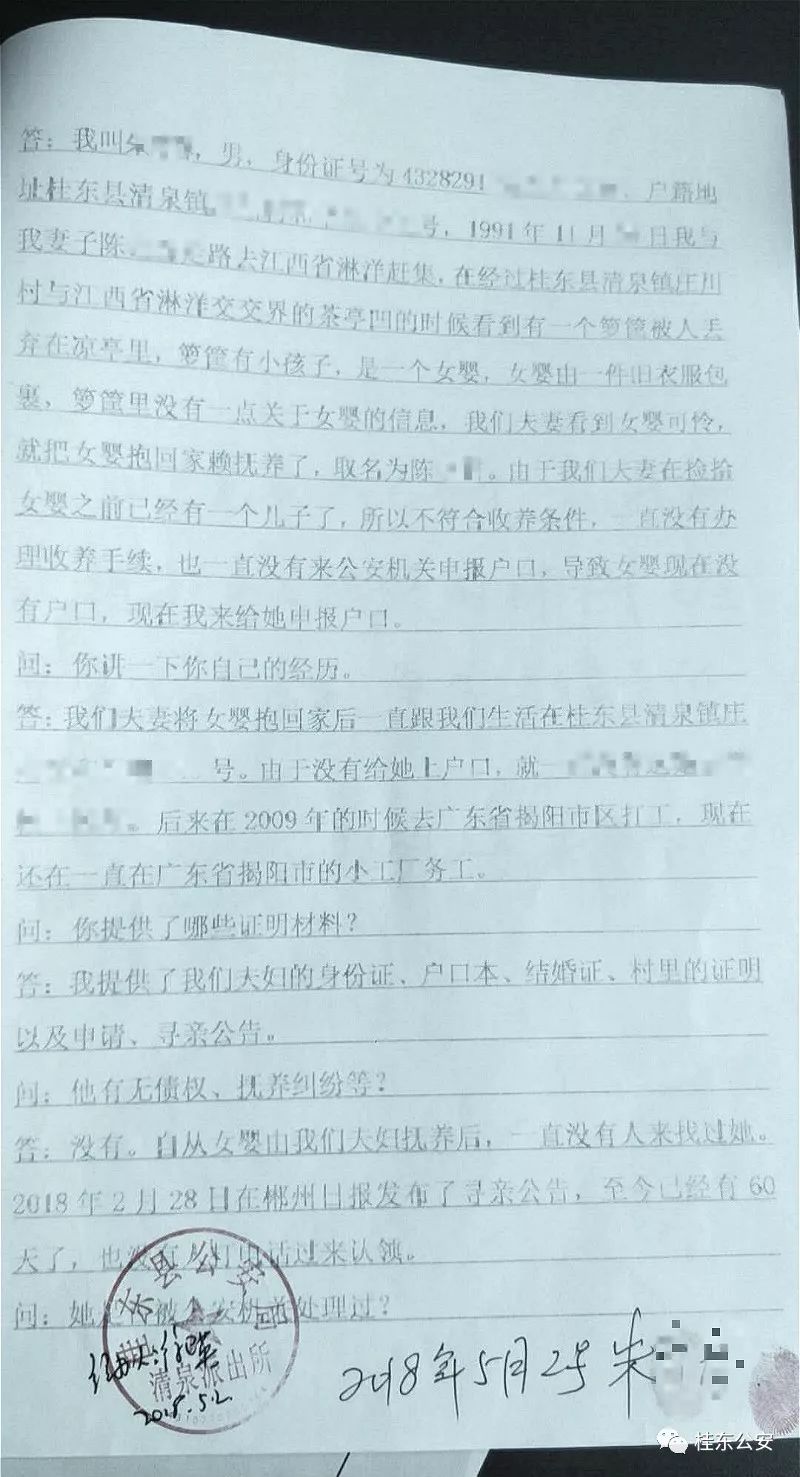 答：我叫朱，男，身份证号为4328291，户籍地
址桂东县清泉镇号，1991年11月日我与
我妻子陈路去江西省淋洋赶集，在经过桂东县清泉镇庄川
村与江西省淋洋交交界的茶亭凹的时候看到有一个箩筐被人丢
弃在凉亭里，箩筐有小孩子，是一个女婴，女婴由一件旧衣服包
裹，箩筐里没有一点关于女婴的信息，我们夫妻看到女婴可怜，
就把女婴抱回家赖抚养了，取名为陈。由于我们夫妻在捡拾
女婴之前已经有一个儿子了，所以不符合收养条件，一直没有办
理收养手续，也一直没有来公安机关申报户口，导致女婴现在没
有户口，现在我来给她申报户口。
问：你讲一下你自己的经历。
答：我们夫妻将女婴抱回家后一直跟我们生活在桂东县清泉镇庄
号。由于没有给她上户口，就一
。后来在2009年的时候去广东省揭阳市区打工，现在
还在一直在广东省揭阳市的小工厂务工。
问：你提供了哪些证明材料？
答：我提供了我们夫妇的身份证、户口本、结婚证、村里的证明
以及申请、寻亲公告。
问：他有无债权、抚养纠纷等？
答：没有。自从女婴由我们夫妇抚养后，一直没有人来找过她。
2018年2月28日在郴州日报发布了寻亲公告，至今已经有60
天了，也没有人打电话过来认领。
问：她是否被公安机关处理过？
东县公安局
清泉派出所
2018.5.2
2018年5月2号 朱
桂东公安